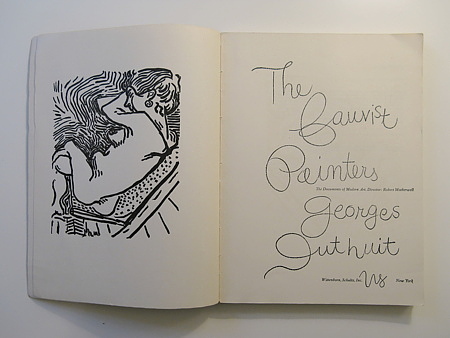 The
Fauvist
Painters
The Documents of Modern Art, Director, Robert Motherwell
Georges
Duthuit
Wittenborn, Schultz, Inc. New York